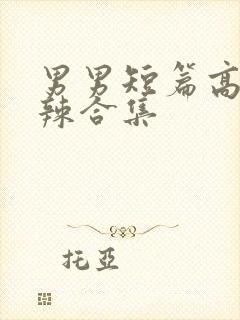 男男短篇高
辣合集
托亞